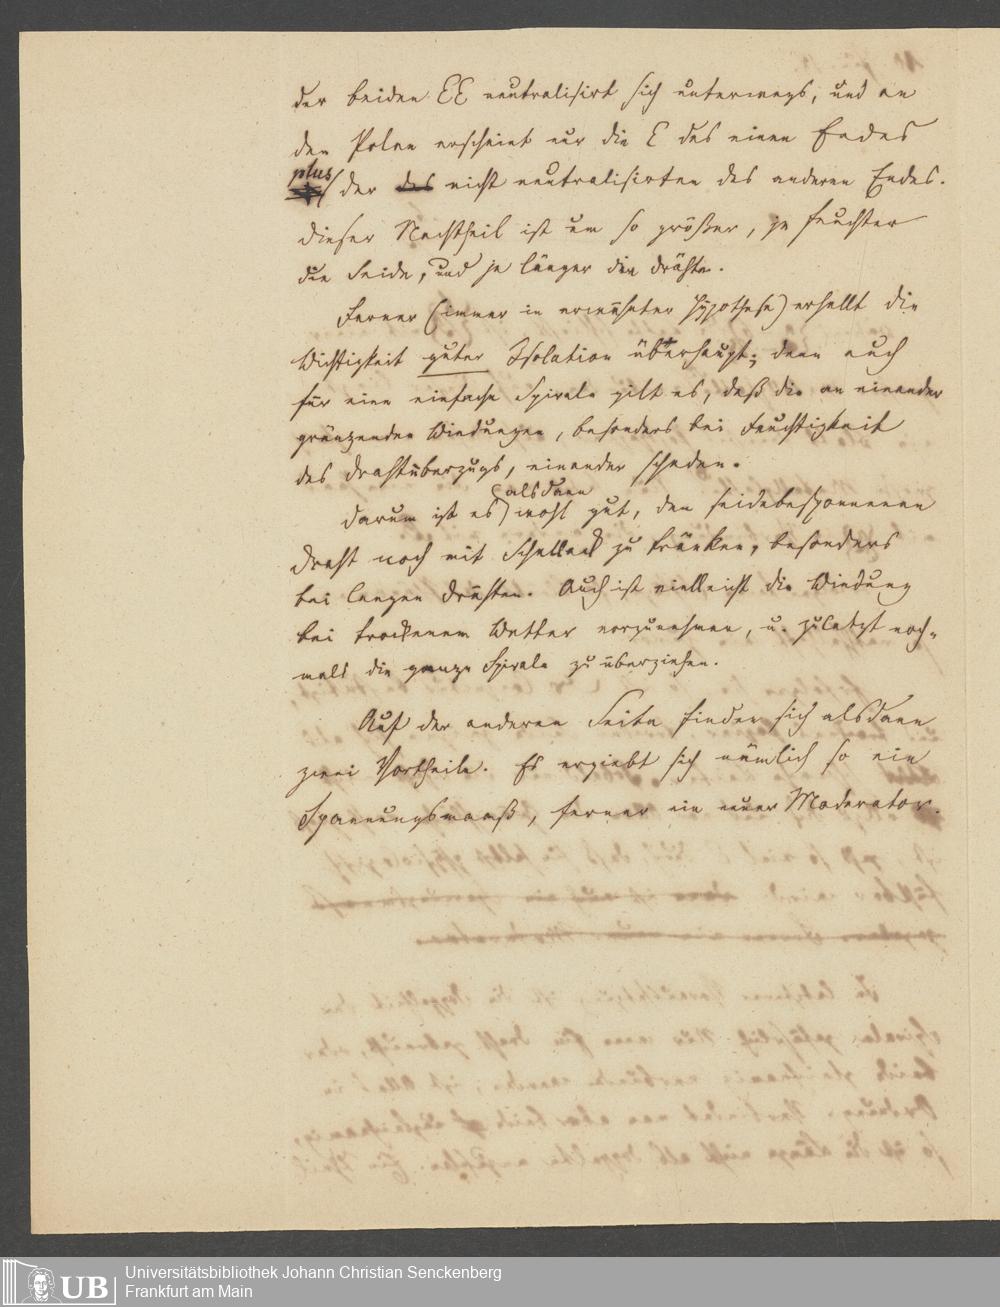 der beiden EE neutralisirt sich unterwegs, und an
den Polen erscheint nur die E des einen Endes
plus der des nicht neutralisirten des anderen Endes.
dieser Nachtheil ist um so größer, je feuchter
die Seide, und je länger die Drähte.
Ferner (immer in erwähnter Hypothese) erhellt die
Wichtigkeit guter Isolation überhaupt; denn auch
für eine einfache Spirale gilt es, daß die an einander
gränzenden Windungen, besonders bei Feuchtigkeit
des Drahtüberzugs, einander schaden.
alsdann
Darum ist es wohl gut, den seidebesponnenen
Draht noch mit Schellack zu tränken, besonders
bei langen Drähten. Auch ist vielleicht die Windung
bei trockenem Wetter vorzunehmen, u. zuletzt noch-
mals die ganze Spirale zu überziehen.
Auf der anderen Seite finden sich alsdann
zwei Vortheile. Es ergiebt sich nämlich so ein
Spannungsmaaß, ferner ein neuer Moderator.
UB
Universitätsbibliothek Johann Christian Senckenberg
Frankfurt am Main